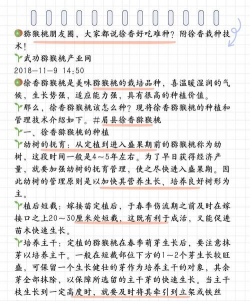 猕猴桃朋友圈，大家都说徐香好吃难种？附徐香栽种技
术！
武功猕猴桃产业网
2018-11-9 14:50
徐香猕猴桃是美味猕猴桃的栽培品种，喜温暖湿润的气
候，生长势强，适应能力强，具有很高的种植价值。
那么，徐香猕猴桃该怎么种？现将徐香猕猴桃的种植和
管理技术介绍如下。#眉县徐香猕猴桃
一、徐香猕猴桃的种植
幼树的抚育：从定植到进入盛果期前的猕猴桃称为幼
树。这段时间一般是4~5年左右。为了早日获得经济产
量，就要加强幼树的抚育管理，使之尽快进入盛果期。因
此幼树的管理原则是以加快其营养生长，培养良好树形为
主。
植后短截：嫁接苗定植后，于春季伤流期之前及时在嫁
接口之上20-30厘米处短截，这既有利于成活，又能促进
苗木快速生长。
培养主干：定植的猕猴桃在春季萌芽生长后，要注意抹
芽以培养主干。一般在短截部位下方的1-2个芽生长较旺
盛，可保留一个生长健壮的芽作为培养主干的对象，其余
芽全部抹除，以保障所选留的主干芽的快速生长。当主干
枝生长到一定高度时，就要及时将其牵引到立架或铁丝